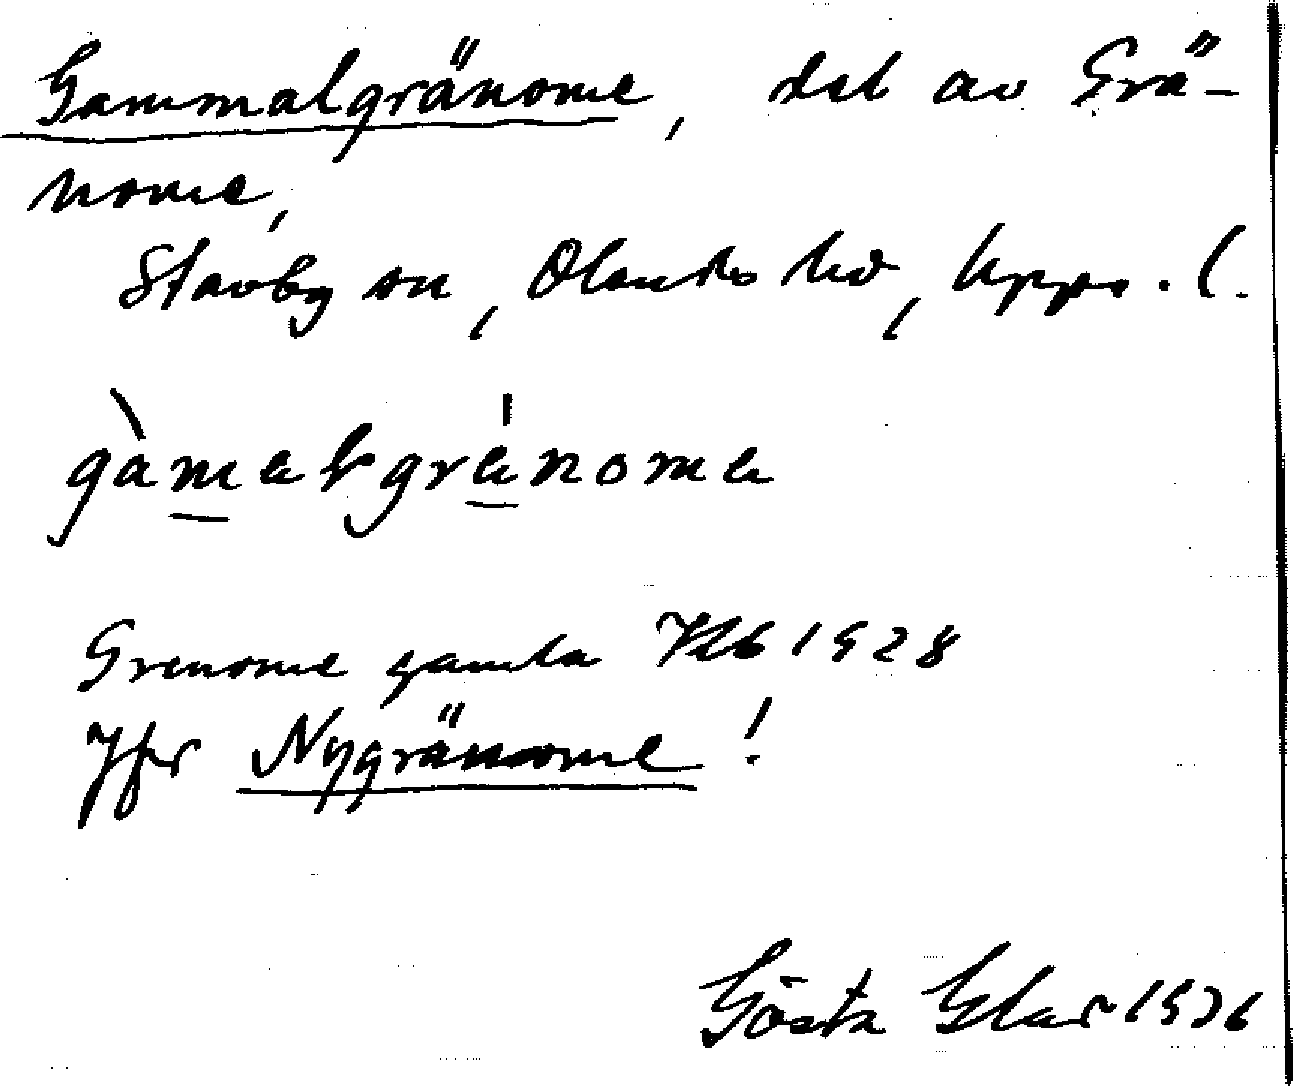 Gammalgränome, del av Grä-
nome,
Stavby sn, Olands hd, Upps. l.
gàmalgränome
Grenome gamla Jlb 1928
Jfr Nygränome!
Gösta 1936